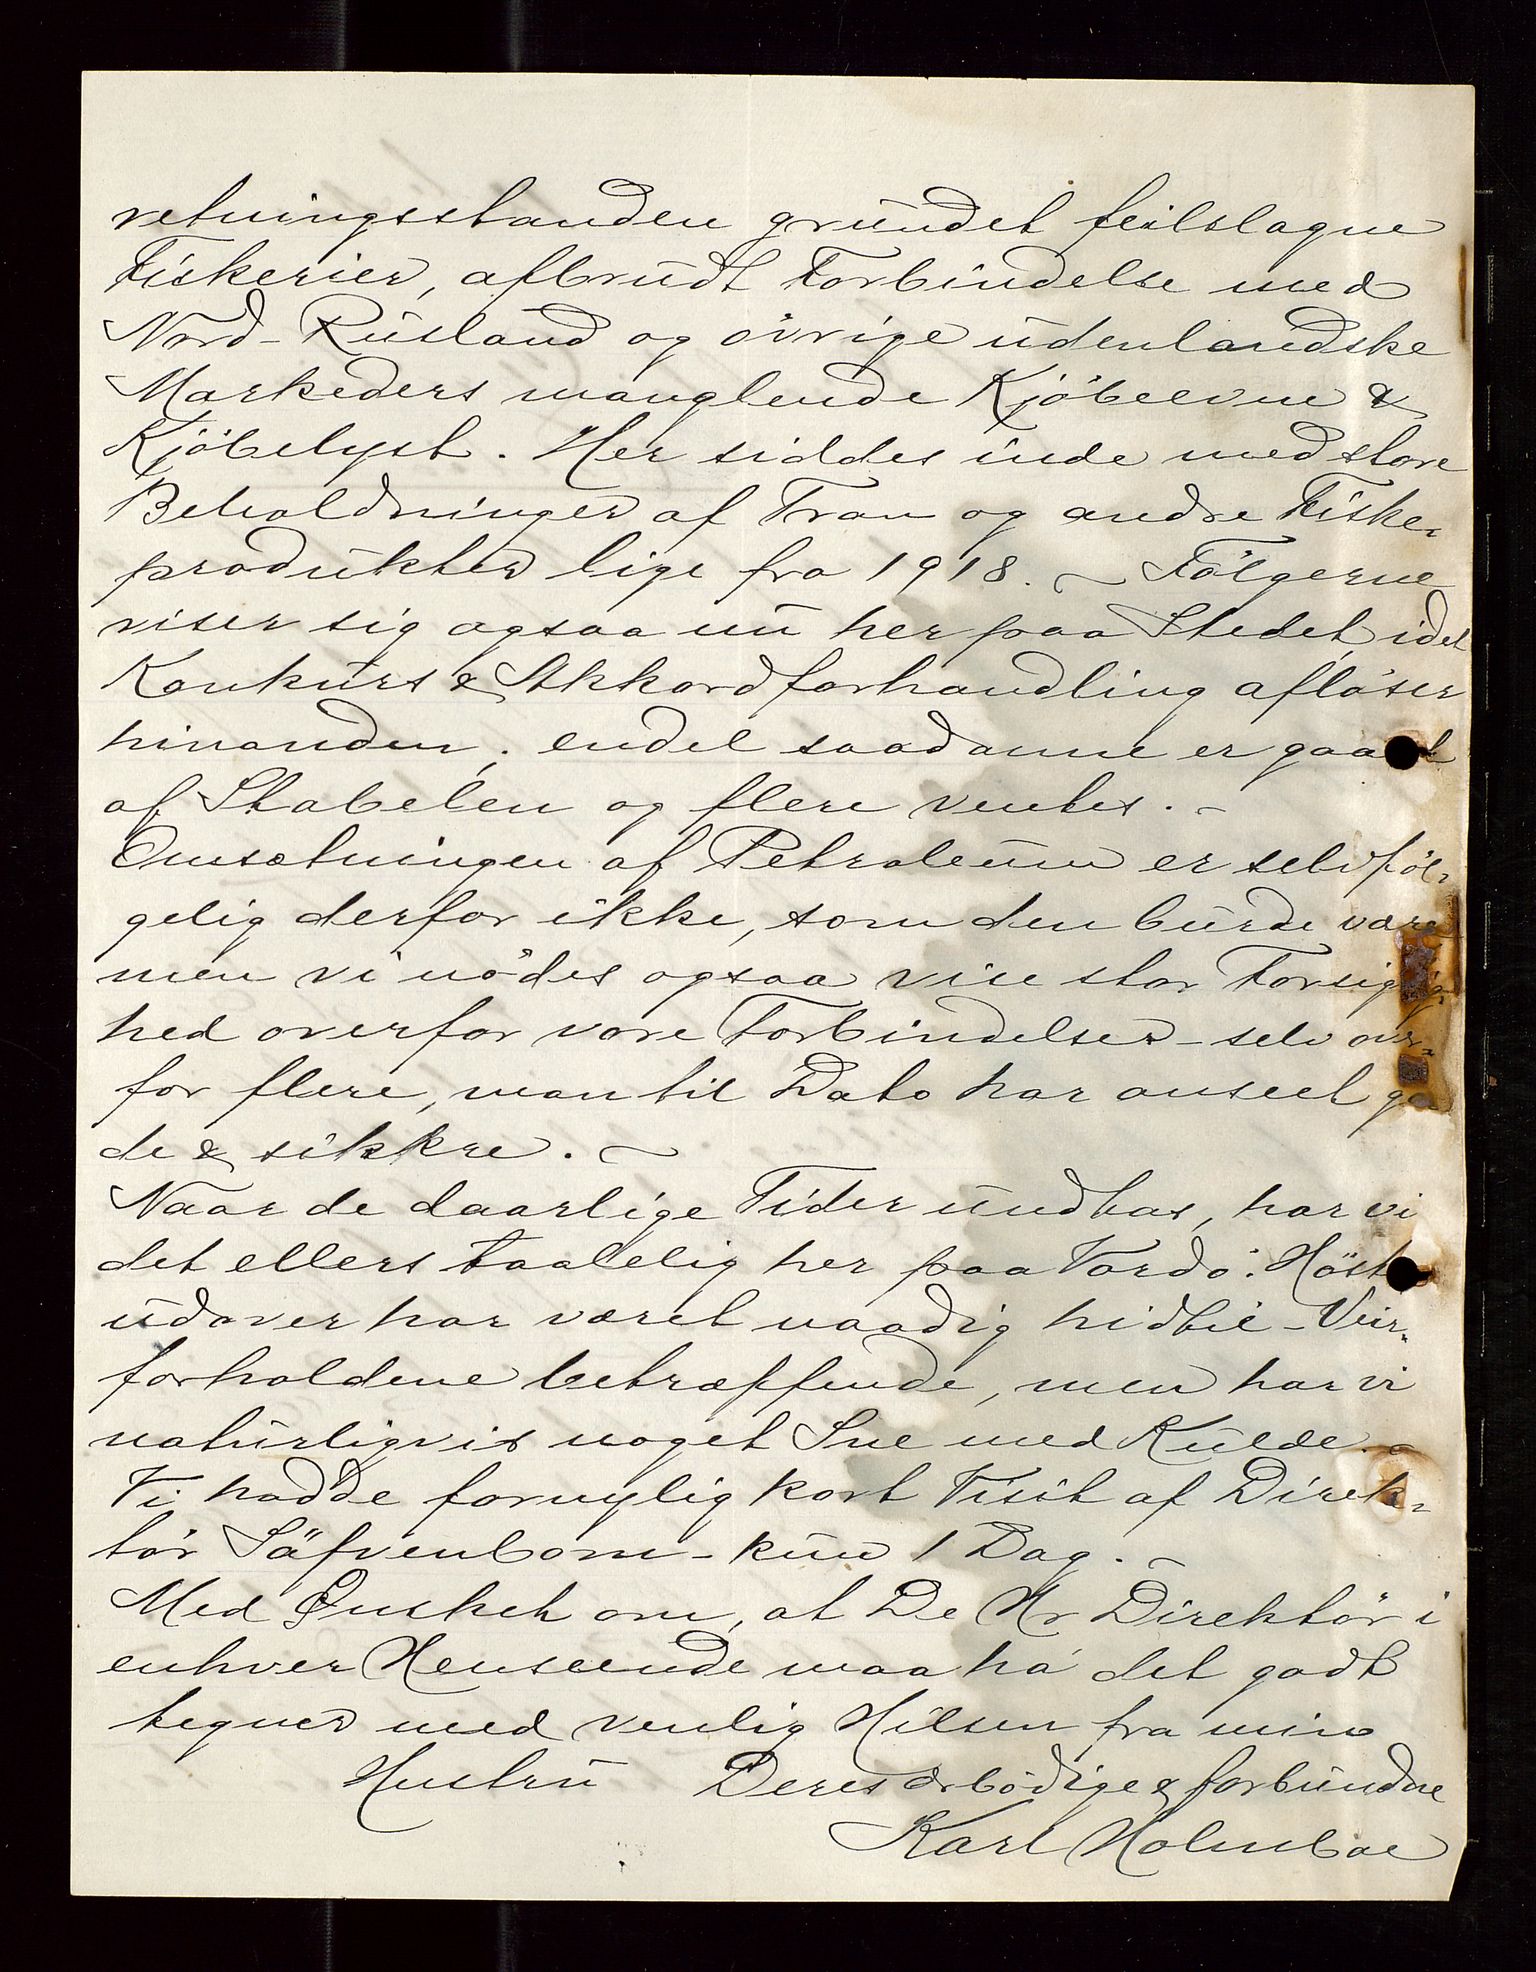 retningsstanden grundet feilslagne
Fiskerier, afbrudt Forbindelse med
Nord-Rusland og övrige udenlandske
Markeders manglende Kjöbeevne &
Kjöbelyst. Her siddes inde med store
Beholdninger af Tran og andre Fiske-
produkter lige fra 1918. ~ Fölgerne
viser sig ogsaa nu her paa Stedet, idet
Konkurs & Akkordforhandling aflöser
hinanden; endel saadanne er gaaet
af Stabelen og flere ventes. -
Omsætningen af Petroleum er selvföl-
gelig derfor ikke, som den burde være
men vi nödes ogsaa vise stor Forsigtig-
hed overfor vore Forbindelser - selv over-
for flere, man til Dato har anseet go
de & sikkre. ~
Naar de daarlige Tider undtas, har vi
det ellers taalelig her paa Vardö. Høsten
udover har været naadig hidtil - Veir-
forholdene betræffende, men har vi
naturligvis noget Sne med Kulde. -
Vi hadde fornylig kort Visit af Direk-
tör Säfvenbom - kun 1 Dag. -
Med Ønsket om, at De Hr Direktör i
enhver Henseende maa ha det godt
tegner med venlig Hilsen fra min
Hustru Deres ærbödige & forbundne
Karl Holmboe